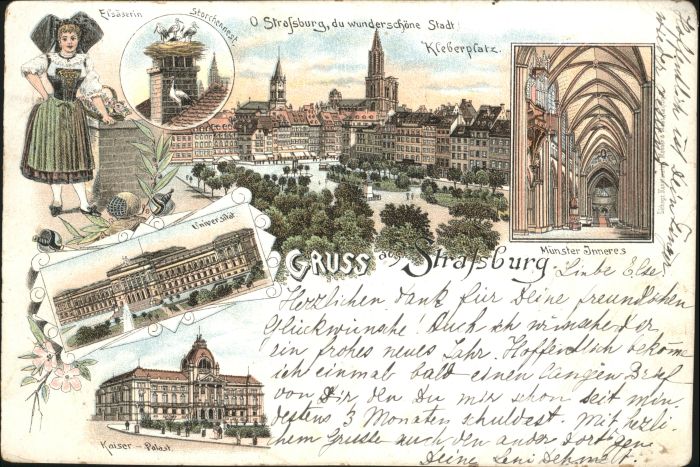 Elsäserin
Storchennest.
O Strafsburg, du wunderschöne Stadt
Kleberplatz.
Universität
Münster Inneres
GRUSS aus Strafsburg
Kaiser – Palast.
Liebe Else
Herzlichen Dank für Deine freundlichen
Glückwünsche! Auch ich wünsche dir
ein frohes neues Jahr. Hoffentlich bekomme
ich einmal bald einen langen Brief
von Dir, den Du mir schon seit min
destens 3 Monaten schuldest. Mit herzli
chem Grusse auch den
Deine Leni
Hoffentlich ist Dein